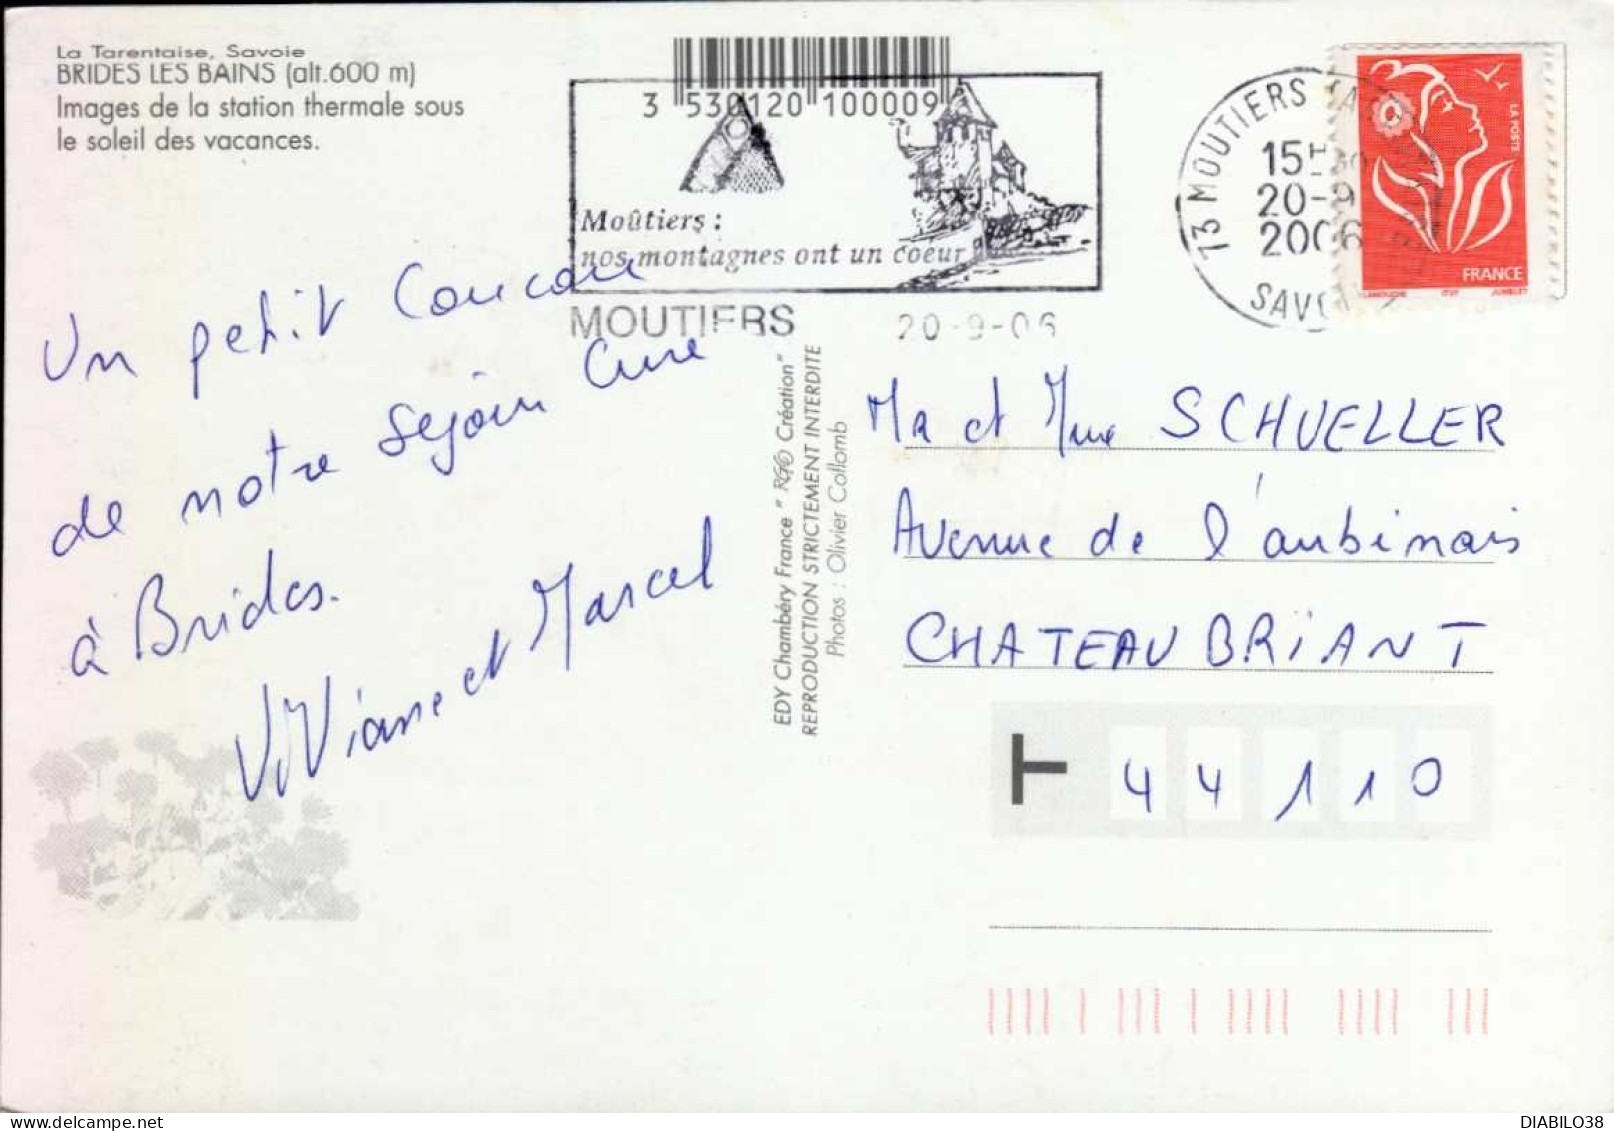 La Tarentaise, Savoie
BRIDES LES BAINS (alt.600 m)
Images de la station thermale sous
le soleil des vacances.
3 530120 100009
Moûtiers :
nos montagnes ont un coeur
MOUTIERS 20-9-06
73 MOUTIERS
15H30
20-9
2006
SAVOIE
LA POSTE
FRANCE
LAMOUCHE ITVF JUMELET
Un petit Coucou
de notre sejour Cure
à Brides.
ViViane et Marcel
EDY Chambéry France " RGO Création"
REPRODUCTION STRICTEMENT INTERDITE
Photos : Olivier Collomb
Mr et Mme SCHUELLER
Avenue de l'aubinais
CHATEAUBRIANT
44110
DIABILO38